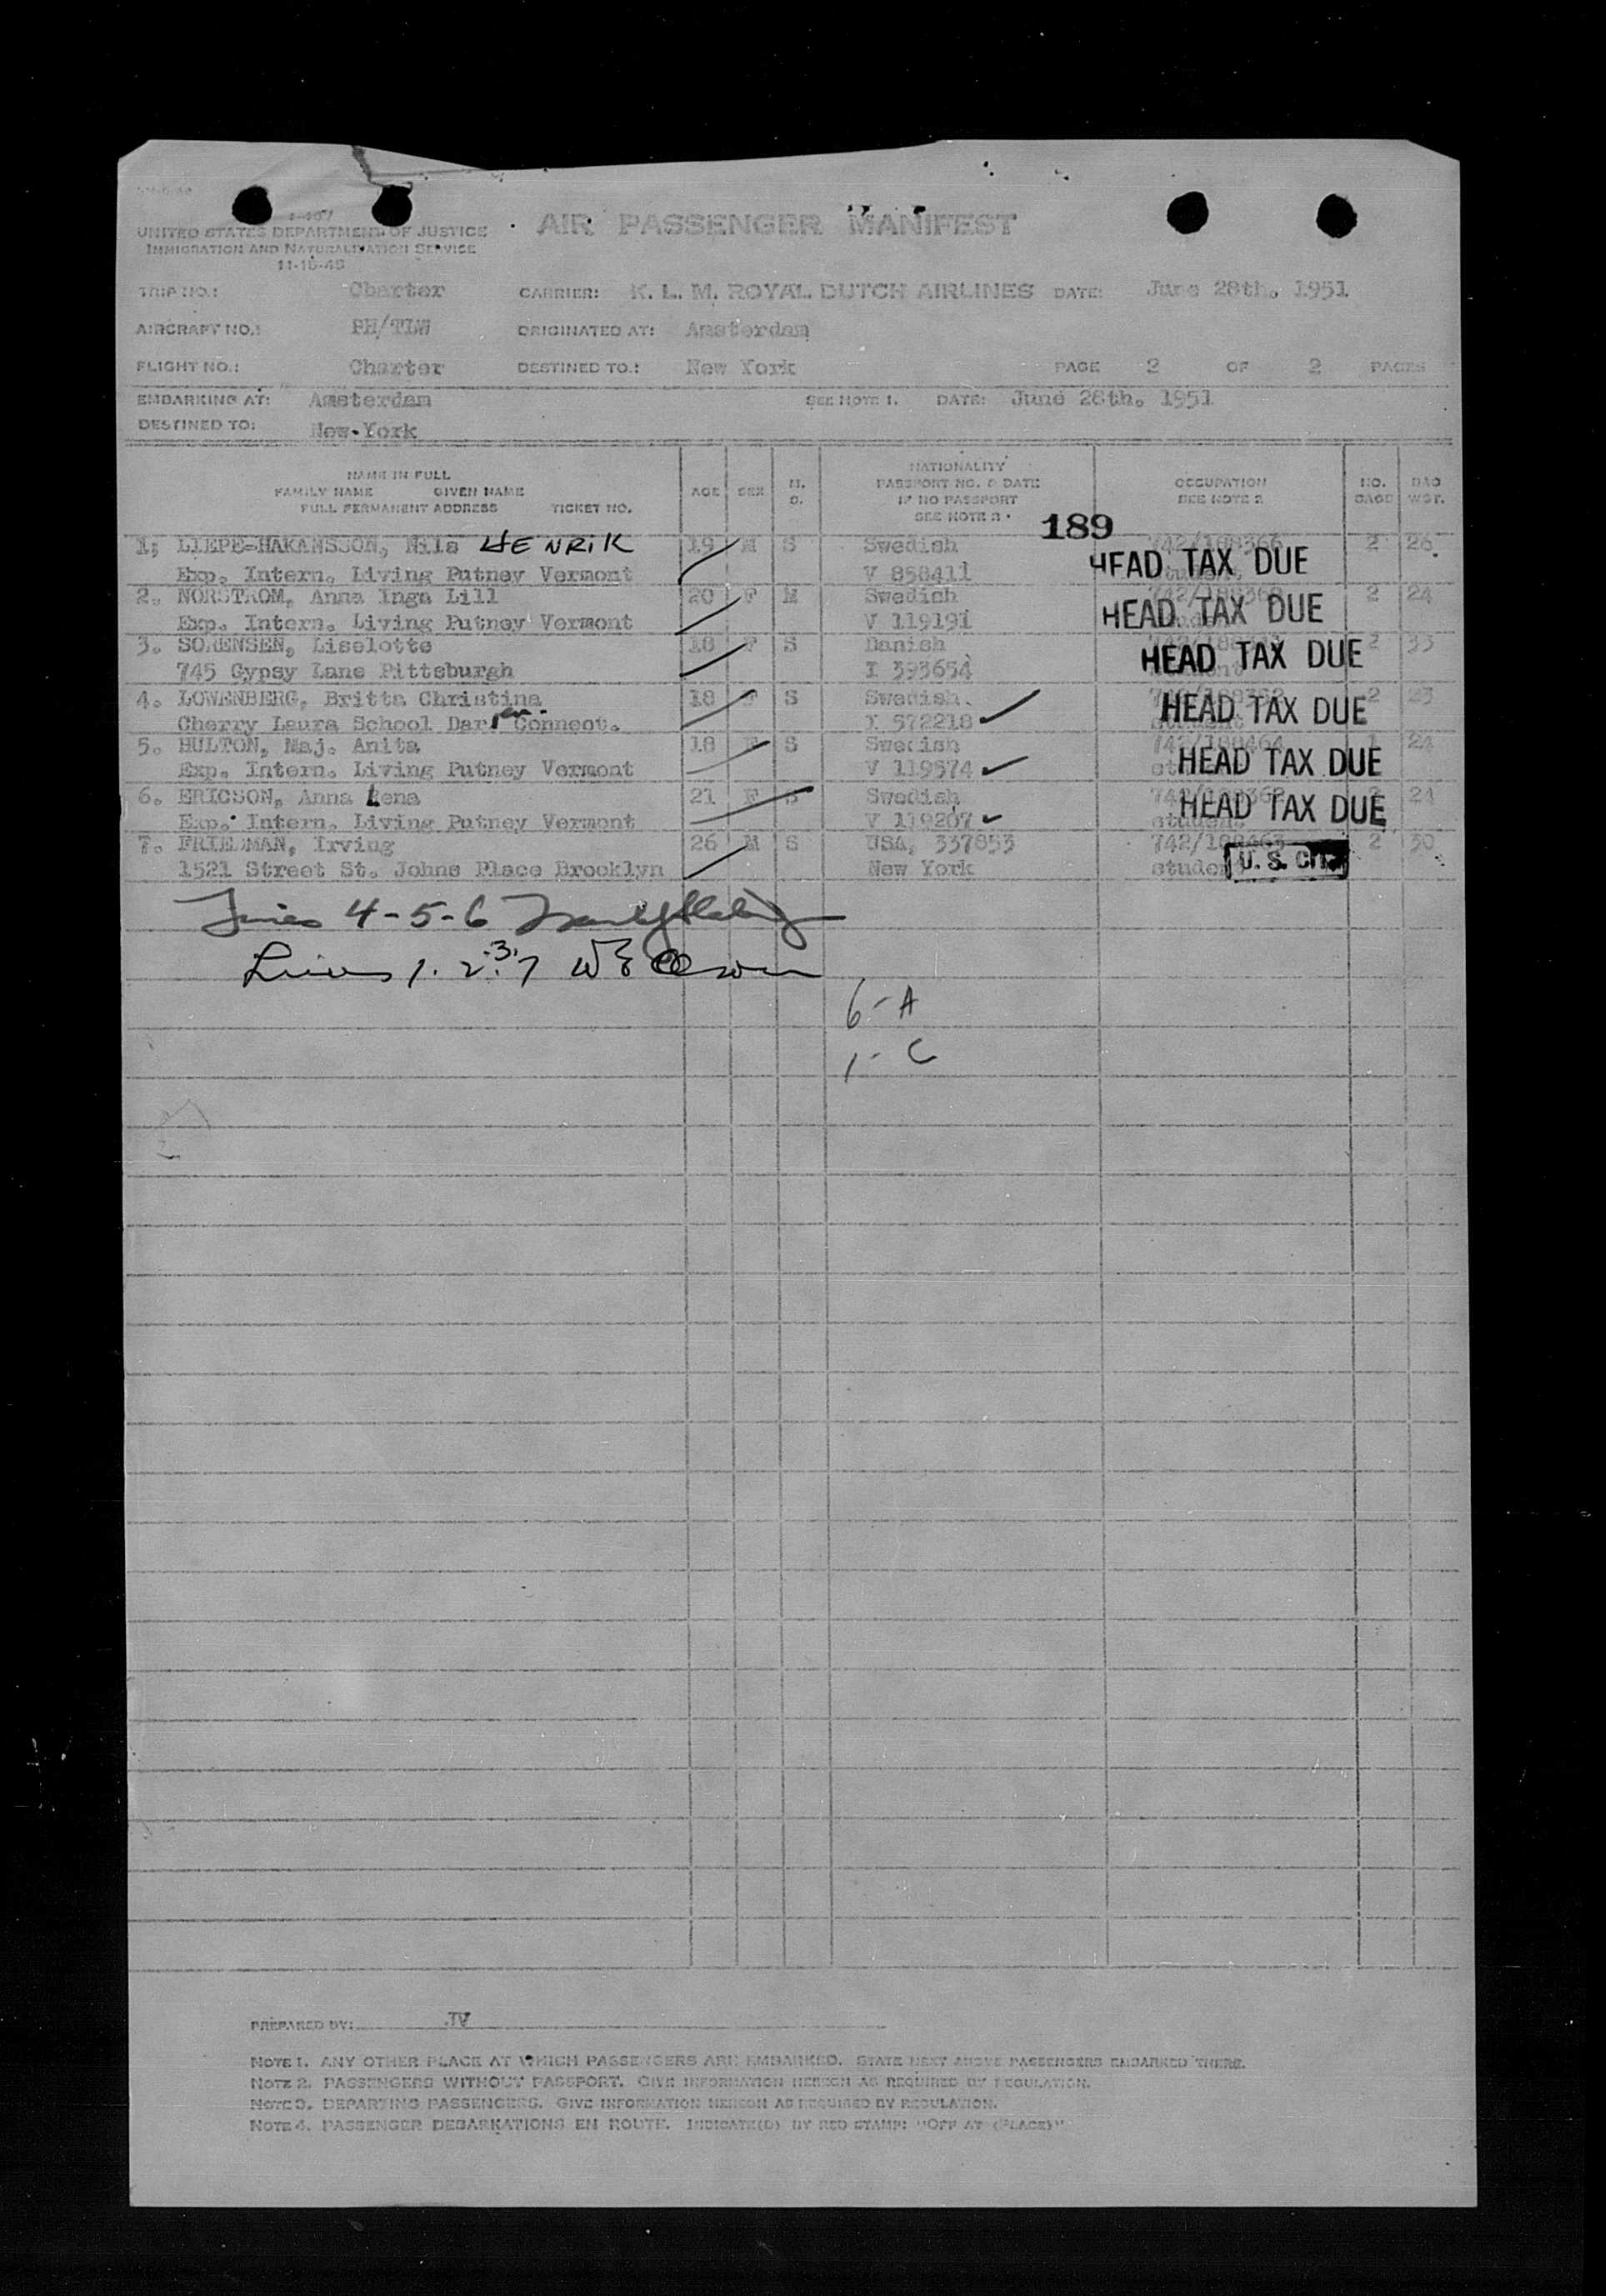 I-467
UNITED STATES DEPARTMENT OF JUSTICE
IMMIGRATION AND NATURALIZATION SERVICE
11-15-48
AIR PASSENGER MANIFEST
TRIP NO.: Charter CARRIER: K. L. M. ROYAL DUTCH AIRLINES DATE: June 28th. 1951
AIRCRAFT NO.: PH/TLW ORIGINATED AT: Amsterdam
FLIGHT NO.: Charter DESTINED TO.: New York PAGE 2 OF 2 PAGES
EMBARKING AT: Amsterdam SEE NOTE 1. DATE: June 28th. 1951
DESTINED TO: New-York
NAME IN FULL
FAMILY NAME GIVEN NAME
FULL PERMANENT ADDRESS TICKET NO.
AGE SEX M. S.
NATIONALITY
PASSPORT NO. & DATE
IF NO PASSPORT
SEE NOTE 2
OCCUPATION
SEE NOTE 2
NO. BAGS
BAG WGT.
189
1; LIEPE-HAKANSSON, Nils HENRIK 19 M S Swedish 742/188366 2 26
Exp. Intern. Living Putney Vermont V 858411 HEAD TAX DUE
2. NORSTROM, Anna Inga Lill 20 F M Swedish 2 24
Exp. Intern. Living Putney Vermont V 119191 HEAD TAX DUE
3. SORENSEN, Liselotte 18 F S Danish 2 33
745 Gypsy Lane Pittsburgh I 393654 HEAD TAX DUE
4. LOWENBERG, Britta Christina 18 F S Swedish. 2 23
Cherry Laura School Darien Connect. I 572218 HEAD TAX DUE
5. HULTON, Maj. Anita 18 F S Swedish 742/188464 1 24
Exp. Intern. Living Putney Vermont V 119574 HEAD TAX DUE
6. ERICSON, Anna Lena 21 F S Swedish 21
Exp. Intern. Living Putney Vermont V 119207 student HEAD TAX DUE
7. FRIEDMAN, Irving 26 M S USA, 337853 742/188463 2 30
1521 Street St. Johns Place Brooklyn New York student U. S. CIT.
Lines 4-5-6
Lines 1. 2. 3. 7
6-A
1-C
PREPARED BY: JV
NOTE 1. ANY OTHER PLACE AT WHICH PASSENGERS ARE EMBARKED. STATE NEXT ABOVE PASSENGERS EMBARKED THERE.
NOTE 2. PASSENGERS WITHOUT PASSPORT. GIVE INFORMATION HEREON AS REQUIRED BY REGULATION.
NOTE 3. DEPARTING PASSENGERS. GIVE INFORMATION HEREON AS REQUIRED BY REGULATION.
NOTE 4. PASSENGER DEBARKATIONS EN ROUTE. INDICATE(D) BY RED STAMP: "OFF AT (PLACE)"